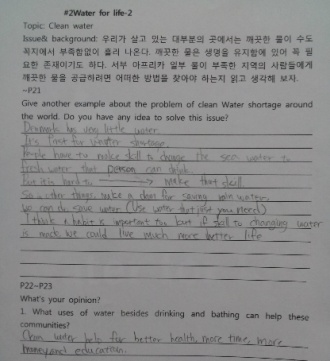 #2Water for life-2
Topic: Clean water
Issue& background: 우리가 살고 있는 대부분의 곳에서는 깨끗한 물이 수도
꼭지에서 부족함없이 흘러 나온다. 깨끗한 물은 생명을 유지함에 있어 꼭 필
요한 존재이기도 하다. 서부 아프리카 일부 물이 부족한 지역의 사람들에게
깨끗한 물을 공급하려면 어떠한 방법을 찾아야 하는지 읽고 생각해 보자.
~P21
Give another example about the problem of clean Water shortage around
the world. Do you have any idea to solve this issue?
Denmark has very little water.
It's first for water shortage.
People have to make skill to change the sea water to
fresh water that person can drink.
but it is hard to make that skill.
So other things, make a dam for saving rain water.
We can do save water. (Use water that just you need)
I think a habit is important too but if skill to changing water
is made we could live much more better life
P22~P23
What's your opinion?
1. What uses of water besides drinking and bathing can help these
communities?
Clean water help for better health, more time, more
money and education.